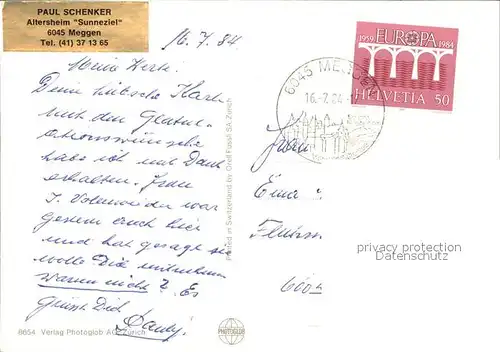 PAUL SCHENKER
Altersheim "Sunneziel"
6045 Meggen
Tel. (41) 37 13 65
16.7.84
Mein Werte.
Deine hübsche Karte
mit den Gratul-
ationswünschen
habe ich mit Dank
erhalten. Frau
I. Volenweider war
gestern auch hier
und hat gesagt sie
wolle Dich mitnehmen
warum nicht? Es
grüsst Dich
8654 Verlag Photoglob AG, Zürich
Printed in Switzerland by Orell Füssli SA, Zürich
PHOTOGLOB
6045 MEGGEN
16.-7.84
1959 EUROPA 1984
HELVETIA 50
Frau
privacy protection
Datenschutz